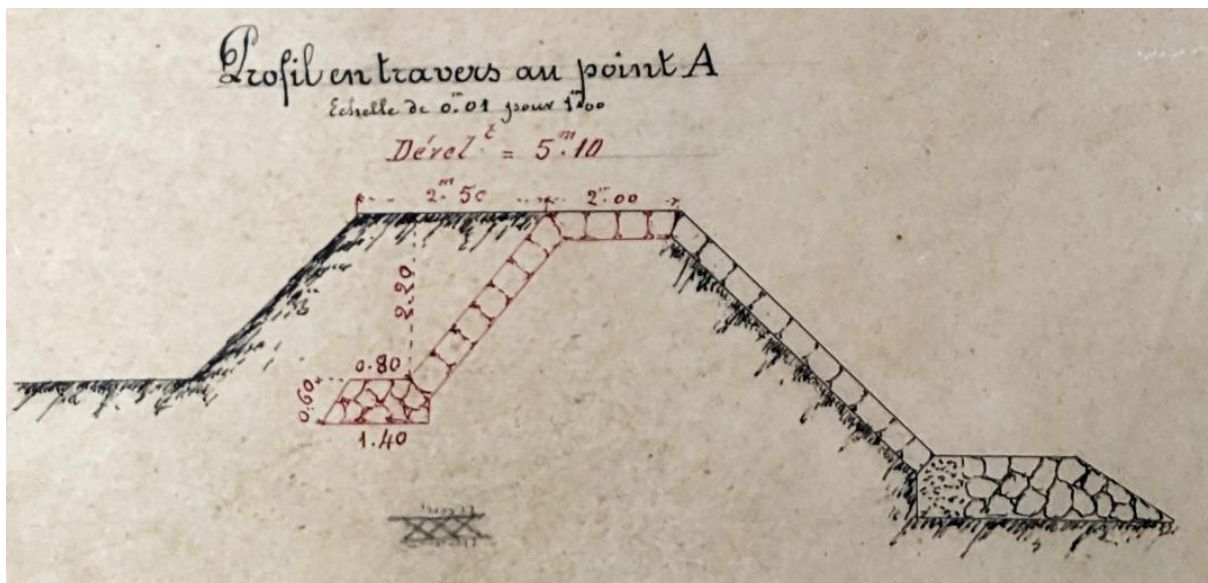 Profil en travers au point A
Echelle de 0m.01 pour 1m00
Dévelt. = 5m.10
2m.50
2m.00
2.20
0.80
0.60
1.40